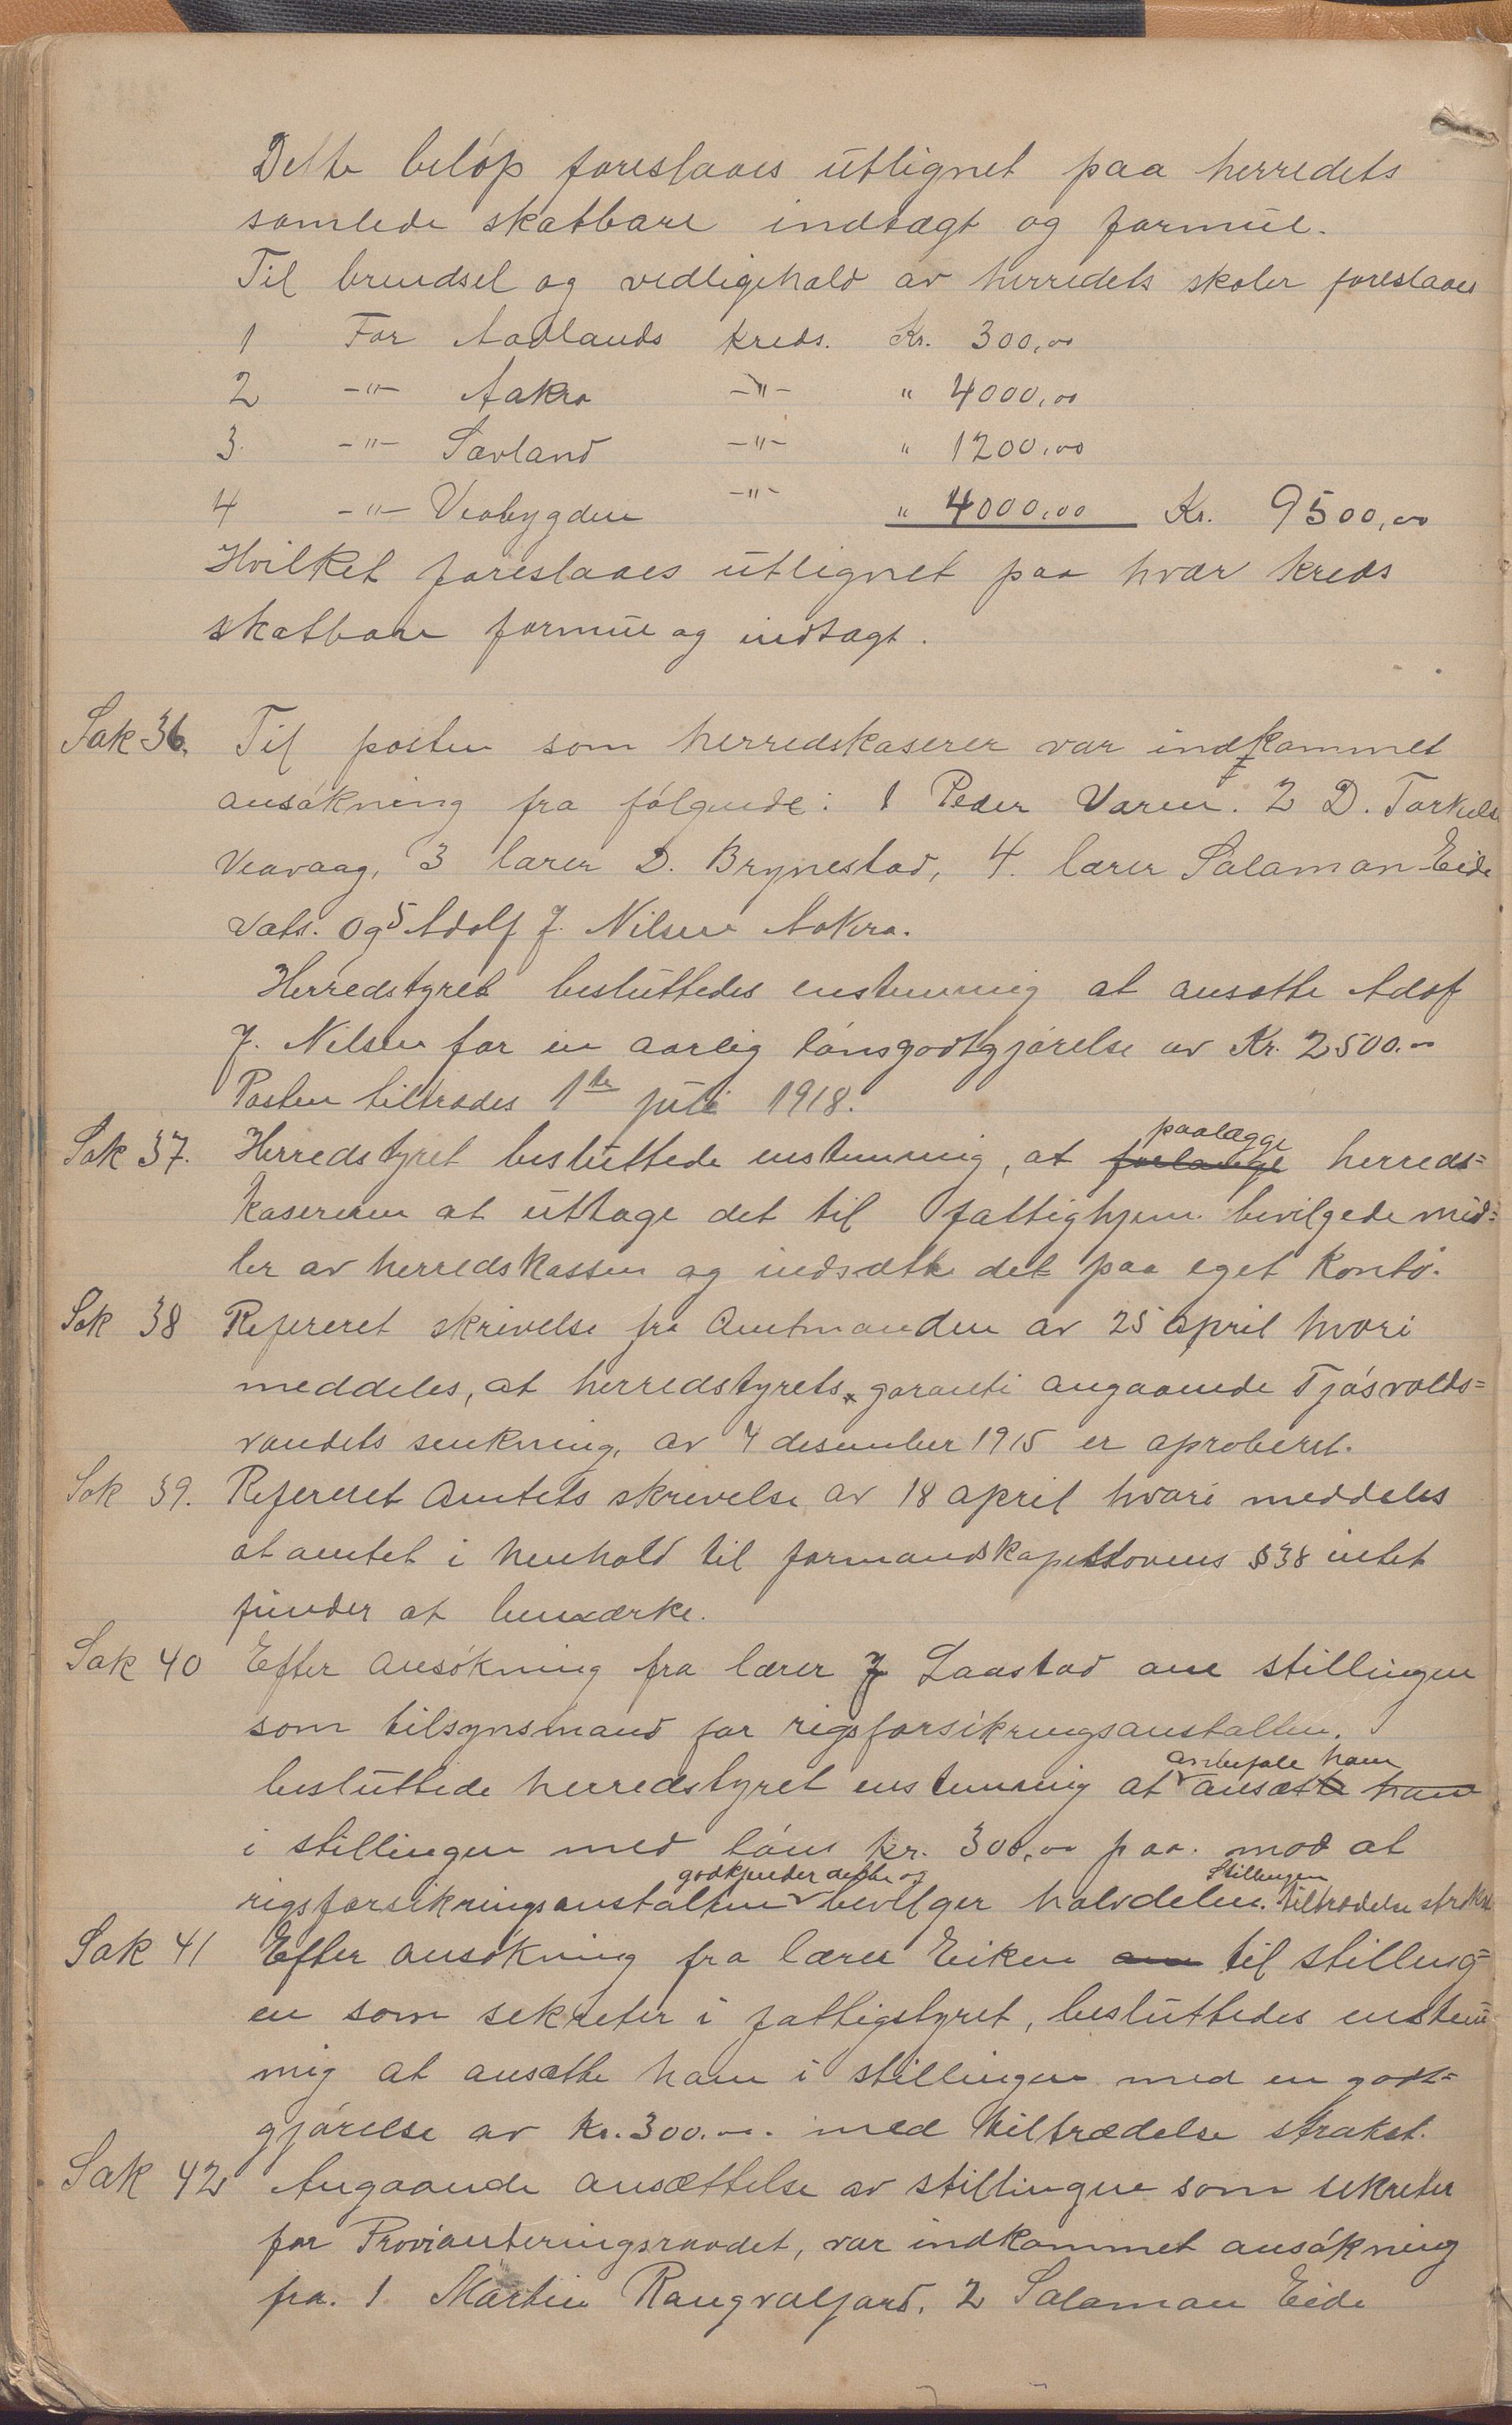 Dette beløp foreslaaes utlignet paa herredets
samlede skatbare indtægt og formue.
Til brendsel og vedligehold av herredets skoler foreslaaes
1 For Aadlands kreds. Kr. 300,00
2 -"- Aakra -"- " 4000,00
3. -"- Sævland -"- " 1200,00
4 -"- Veabygden -"- " 4000,00 Kr. 9500,00
Hvilket foreslaaes utlignet paa hver kreds
skatbare formue og indtægt.
Sak 36. Til posten som herredskaserer var indkommet
ansøkning fra følgende: 1 Peder Varne. 2 D. Torkelse
Veavaag, 3 lærer D. Brynestad, 4. lærer Salamon Eide
Vats. og 5 Adolf J. Nilsen Aakra.
Herredstyret besluttedes enstemmig at ansætte Adolf
J. Nilsen for en aarlig lønsgodtgjørelse av Kr. 2500.00
Posten tiltrædes 1ste juli 1918.
Sak 37. Herredstyret besluttede enstemmig, at forlange paalægge herreds=
kasereren at uttage det til fattighjem bevilgede mid=
ler av herredskassen og indsætte det paa eget konto.
Sak 38 Refereret skrivelse fra Amtmanden av 25 april hvori
meddeles, at herredstyrets garanti angaaende Tjøsvolds=
vandets senkning, av 4 desember 1915 er aproberet.
Sak 39. Refereret Amtets skrivelse av 18 april hvori meddeles
at amtet i henhold til formandskapetslovens § 38 intet
finder at bemærke.
Sak 40 Efter ansøkning fra lærer J Laastad om stillingen
som tilsynsmand for rigsforsikringsanstalten.
besluttede herredstyret enstemmig at anbefale ham ansætte ham
i stillingen med løn kr. 300,00 p aa. mod at
rigsforsikringsanstalten godkjender dette og bevilger halvdelen. Stillingen tiltrædelse strakst
Sak 41 Efter ansøkning fra lærer Eiken om til stilling=
en som sekretær i fattigstyret, besluttedes enstem=
mig at ansætte ham i stillingen med en godt=
gjørelse av Kr. 300.00. med tiltrædelse strakst.
Sak 42 Angaaende ansættelse av stillingen som sekretær
for Provianteringsraadet, var indkommet ansøkning
fra. 1. Martin Rangvaljord, 2 Salamon Eide